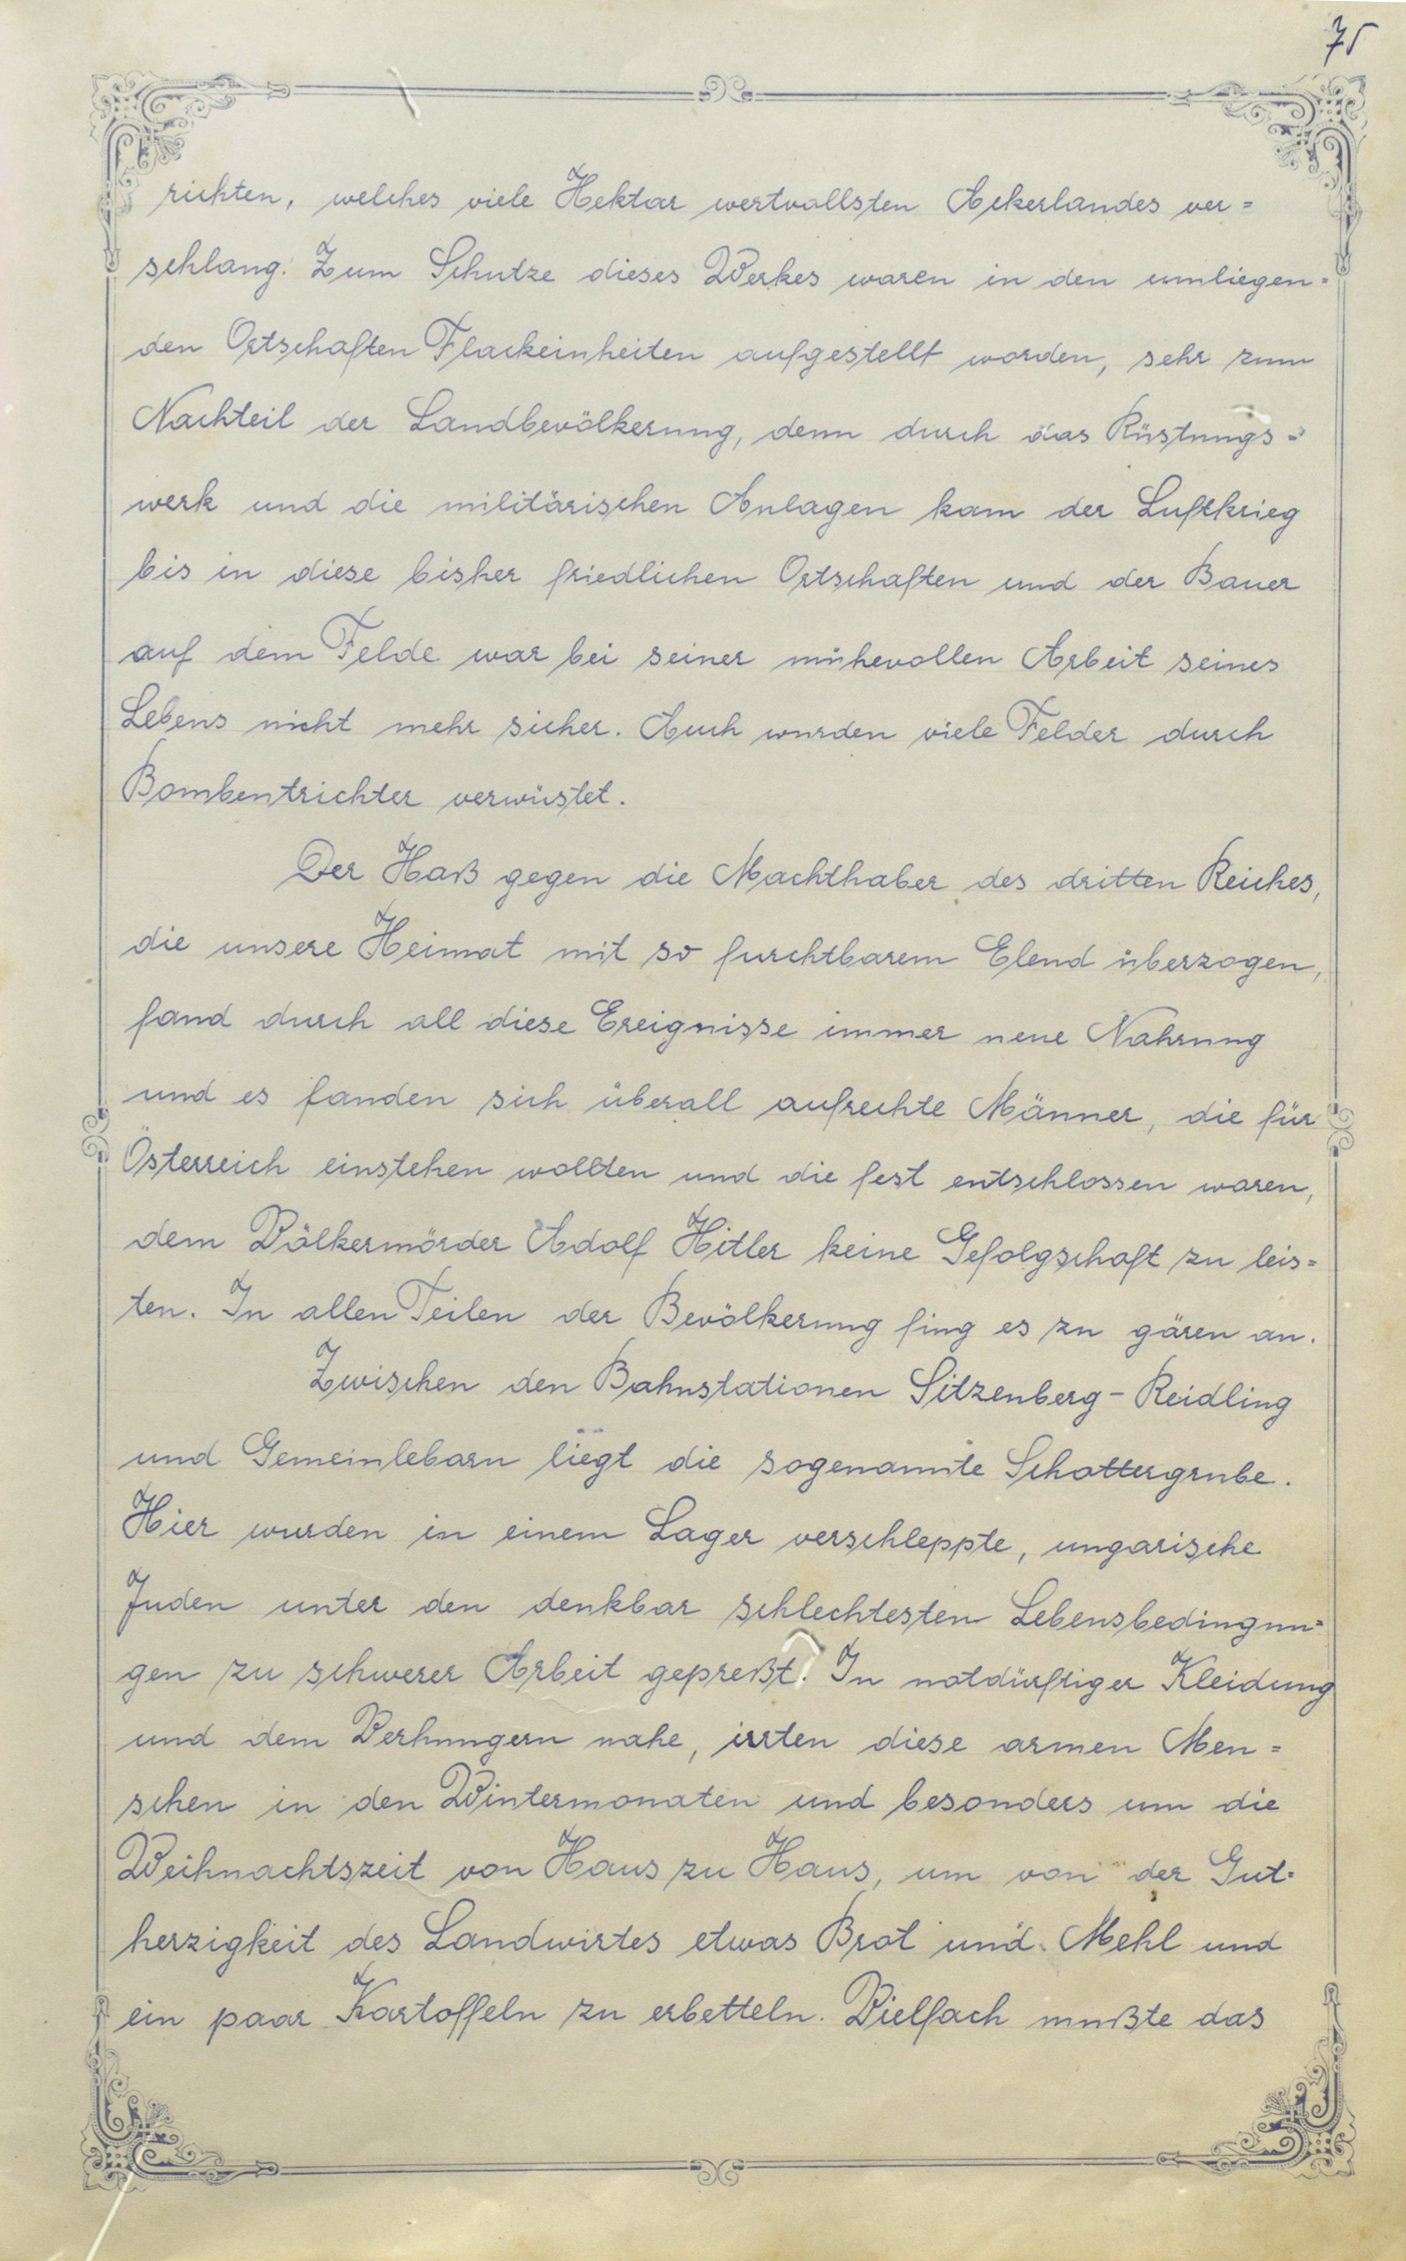 75
richten, welches viele Hektar wertvollsten Ackerlandes ver=
schlang. Zum Schutze dieses Werkes waren in den umliegen=
den Ortschaften Flackeinheiten aufgestellt worden, sehr zum
Nachteil der Landbevölkerung, denn durch das Rüstungs=
werk und die militärischen Anlagen kam der Luftkrieg
bis in diese bisher friedlichen Ortschaften und der Bauer
auf dem Felde war bei seiner mühevollen Arbeit seines
Lebens nicht mehr sicher. Auch wurden viele Felder durch
Bombentrichter verwüstet.
Der Haß gegen die Machthaber des dritten Reiches,
die unsere Heimat mit so furchtbarem Elend überzogen,
fand durch all diese Ereignisse immer neue Nahrung
und es fanden sich überall aufrechte Männer, die für
Österreich einstehen wollten und die fest entschlossen waren,
dem Völkermörder Adolf Hitler keine Gefolgschaft zu leis=
ten. In allen Teilen der Bevölkerung fing es zu gären an.
Zwischen den Bahnstationen Sitzenberg-Reidling
und Gemeinlebarn liegt die sogenannte Schottergrube.
Hier wurden in einem Lager verschleppte, ungarische
Juden unter den denkbar schlechtesten Lebensbedingun=
gen zu schwerer Arbeit gepreßt. In notdürftiger Kleidung
und dem Verhungern nahe, irrten diese armen Men=
schen in den Wintermonaten und besonders um die
Weihnachtszeit von Haus zu Haus, um von der Gut=
herzigkeit des Landwirtes etwas Brot und Mehl und
ein paar Kartoffeln zu erbetteln. Vielfach mußte das